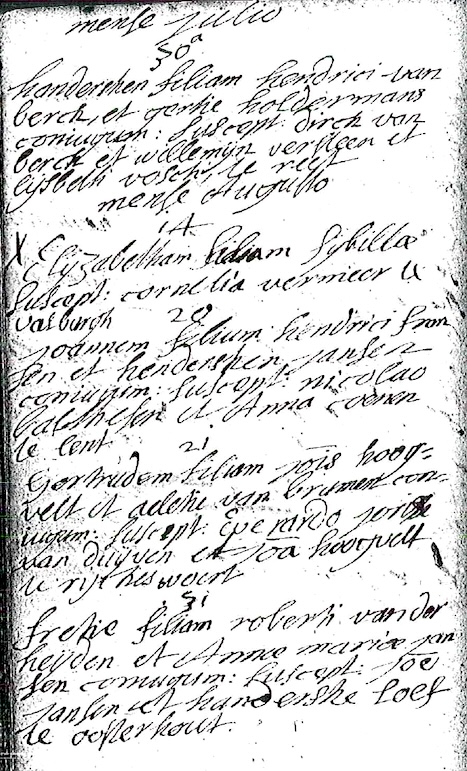 mense julio
30a
henderschen filiam hendrici van
berck, et gertie holdermans
coniugum: suscept: dirck van
berck et willemijn versteen et
lijsbeth vosch, te reet
mense Augusto
14
X Elizabetham filiam Sybillæ
suscept: cornelia vermeer ex
vasburgh
20
joannem filium hendrici fran
sen et hendersken jansen
coniugum: suscept: nicolao
balthesen et Anna coenen
te lent
21
Gertrudem filiam jois hoog-
velt et aeltie van brumen con-
iugum: suscept: Everardo
van duyven et joa hoogvelt
te rijtheswoert
31
fretie filiam roberti vander
heijden et Annæ mariæ jan
sen coniugum: suscept: joe
jansen et handerske Loef
te oosterhout.